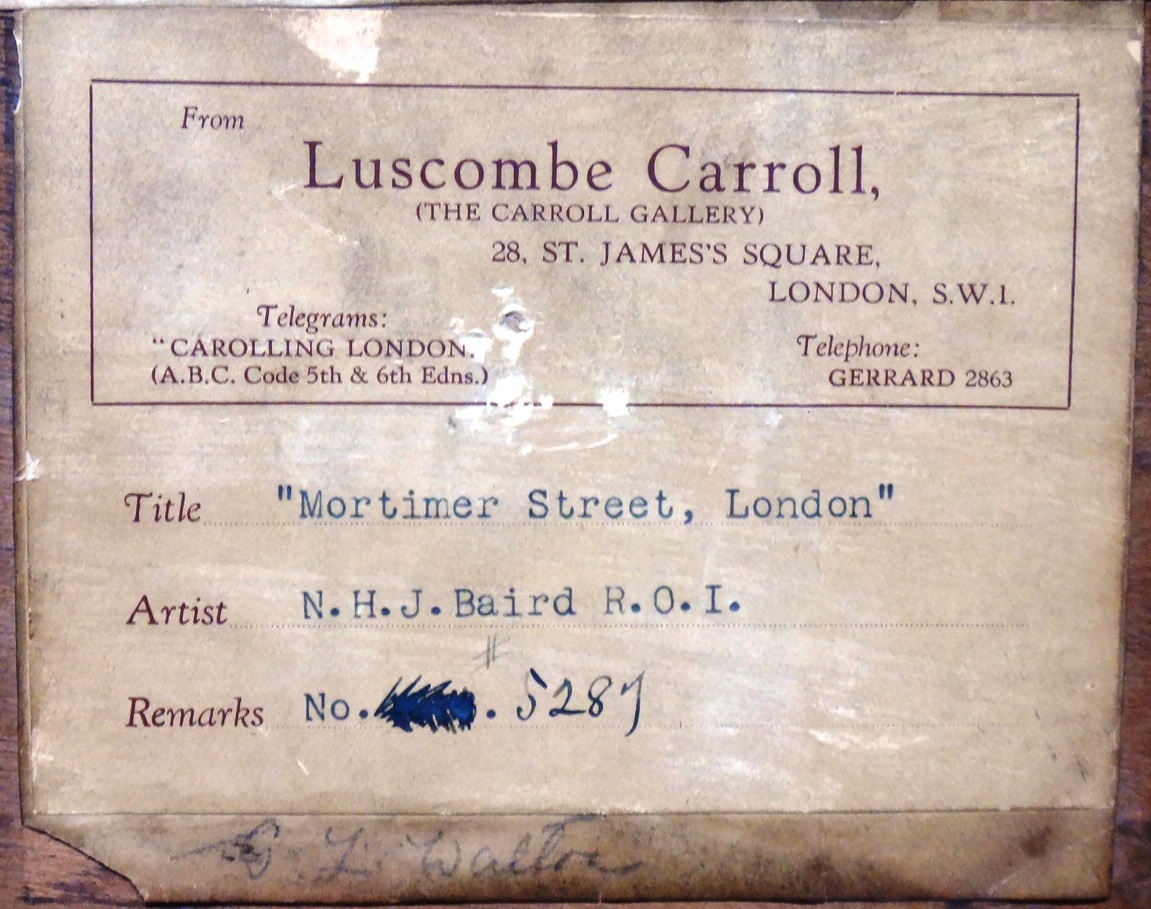 From
Luscombe Carroll,
(THE CARROLL GALLERY)
28, ST. JAMES'S SQUARE,
LONDON, S.W.1.
Telegrams:
"CAROLLING LONDON.
(A.B.C. Code 5th & 6th Edns.)
Telephone:
GERRARD 2863
Title "Mortimer Street, London"
Artist N.H.J.Baird R.O.I.
#
Remarks No. . 5287
L. Walton